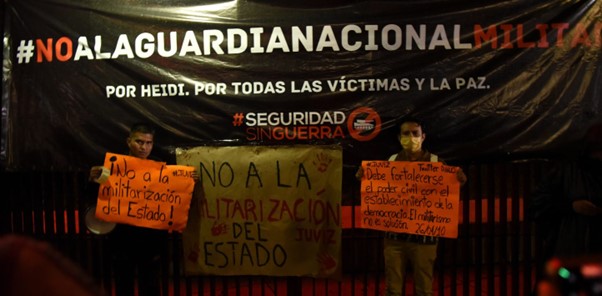 #NOALAGUARDIANACIONALMILITAR
POR HEIDI. POR TODAS LAS VÍCTIMAS Y LA PAZ.
#SEGURIDAD
SINGUERRA
¡No a la
militarización
del Estado!
#JUVIZ
NO A LA
MILITARIZACIÓN
DEL
ESTADO
JUVIZ
#JUVIZ Twitter
Debe fortalecerse
el poder civil con el
establecimiento de la
democracia. El militarismo
no es solución.